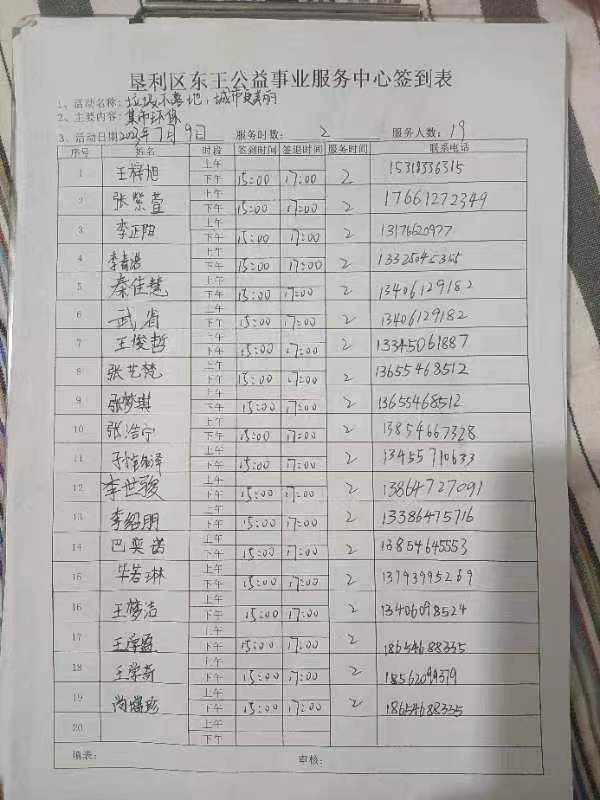 垦利区东王公益事业服务中心签到表
1、活动名称：垃圾不落地，城市更美丽
2、主要内容：集市环保
3、活动日期 7月9日 服务时数：2 服务人数：19
序号 姓名 时段 签到时间 签退时间 服务时间 联系电话
1 王梓旭 上午 下午 15:00 17:00 2 15318336315
2 张紫萱 上午 下午 15:00 17:00 2 17661272349
3 李正阳 上午 下午 15:00 17:00 2 13176620977
4 上午 下午 15:00 17:00 2
5 秦佳慧 上午 下午 15:00 17:00 2 13406129182
6 武省 上午 下午 15:00 17:00 2 13406129182
7 王俊哲 上午 下午 15:00 17:00 2 13345061887
8 张艺梵 上午 下午 15:00 17:00 2 13655468512
9 张梦琪 上午 下午 15:00 17:00 2 13655468512
10 张冶宁 上午 下午 15:00 17:00 2 13854667328
11 上午 下午 15:00 17:00 2 13455710633
12 李世骏 上午 下午 15:00 17:00 2 13864727091
13 李绍朋 上午 下午 15:00 17:00 2 13386475716
14 巴奕诺 上午 下午 15:00 17:00 2 13854645553
15 华若琳 上午 下午 15:00 17:00 2 13793995269
16 王梦洁 上午 下午 15:00 17:00 2 13406098524
17 上午 下午 15:00 17:00 2 18654688335
18 上午 下午 15:00 17:00 2 18562099379
19 上午 下午 15:00 17:00 2 18654688335
20 上午 下午
填表： 审核：